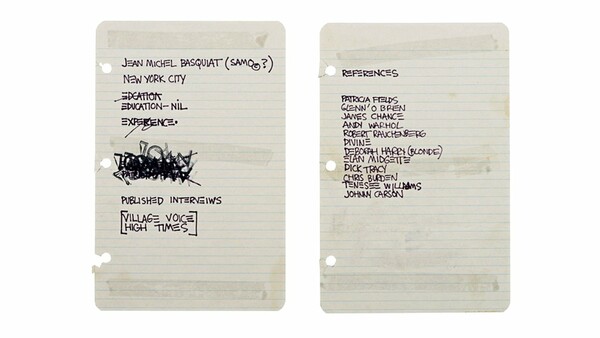 JEAN MICHEL BASQUIAT (SAMO©?)
NEW YORK CITY
EDCATION
EDUCATION-NIL
EXPERIENCE.
PUBLISHED INTERVEIWS
[VILLAGE VOICE
HIGH TIMES]
REFERENCES
PATRICIA FIELDS
GLENN' O BRIEN
JAMES CHANCE
ANDY WARHOL
ROBERT RAUCHENBERG
DIVINE
DEBORAH HARRY (BLONDE)
ELAN MIDGETTE
DICK TRACY
CHRIS BURDEN
TENESEE WILLIAMS
JOHNNY CARSON